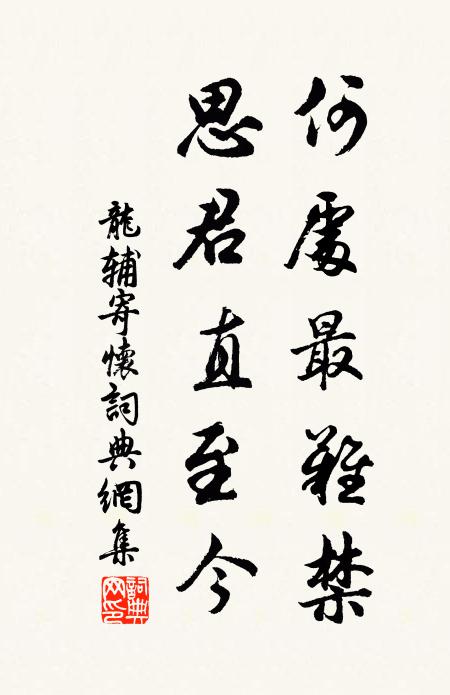 何處最難禁
思君直至今
龍輔寄懷詞典網集
詞典网印